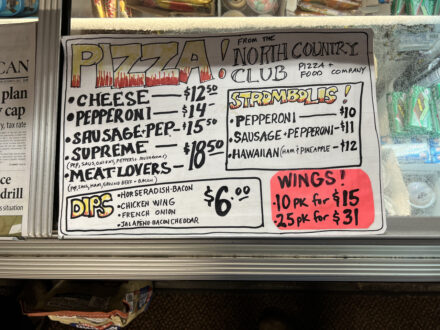 PIZZA!
FROM THE
NORTH COUNTRY
CLUB PIZZA +
FOOD COMPANY
• CHEESE — $12.50
• PEPPERONI — $14-
• SAUSAGE-PEP- $15.50
• SUPREME
(PEP, SAUS, ONIONS, PEPPERS, MUSHROOMS)
• MEATLOVERS - $18.50
STROMBOLIS!
• PEPPERONI — $10
• SAUSAGE-PEPPERONI- $11
• HAWAIIAN (HAM & PINEAPPLE - $12
DIPS
• HORSERADISH-BACON
• CHICKEN WING
• FRENCH ONION
• JALAPENO BACON CHEDDAR
$6.00
WINGS!
• 10 PK for $15
25 PK for $31
CAN
plan
cap
y, tax rate
ce
drill
s situation